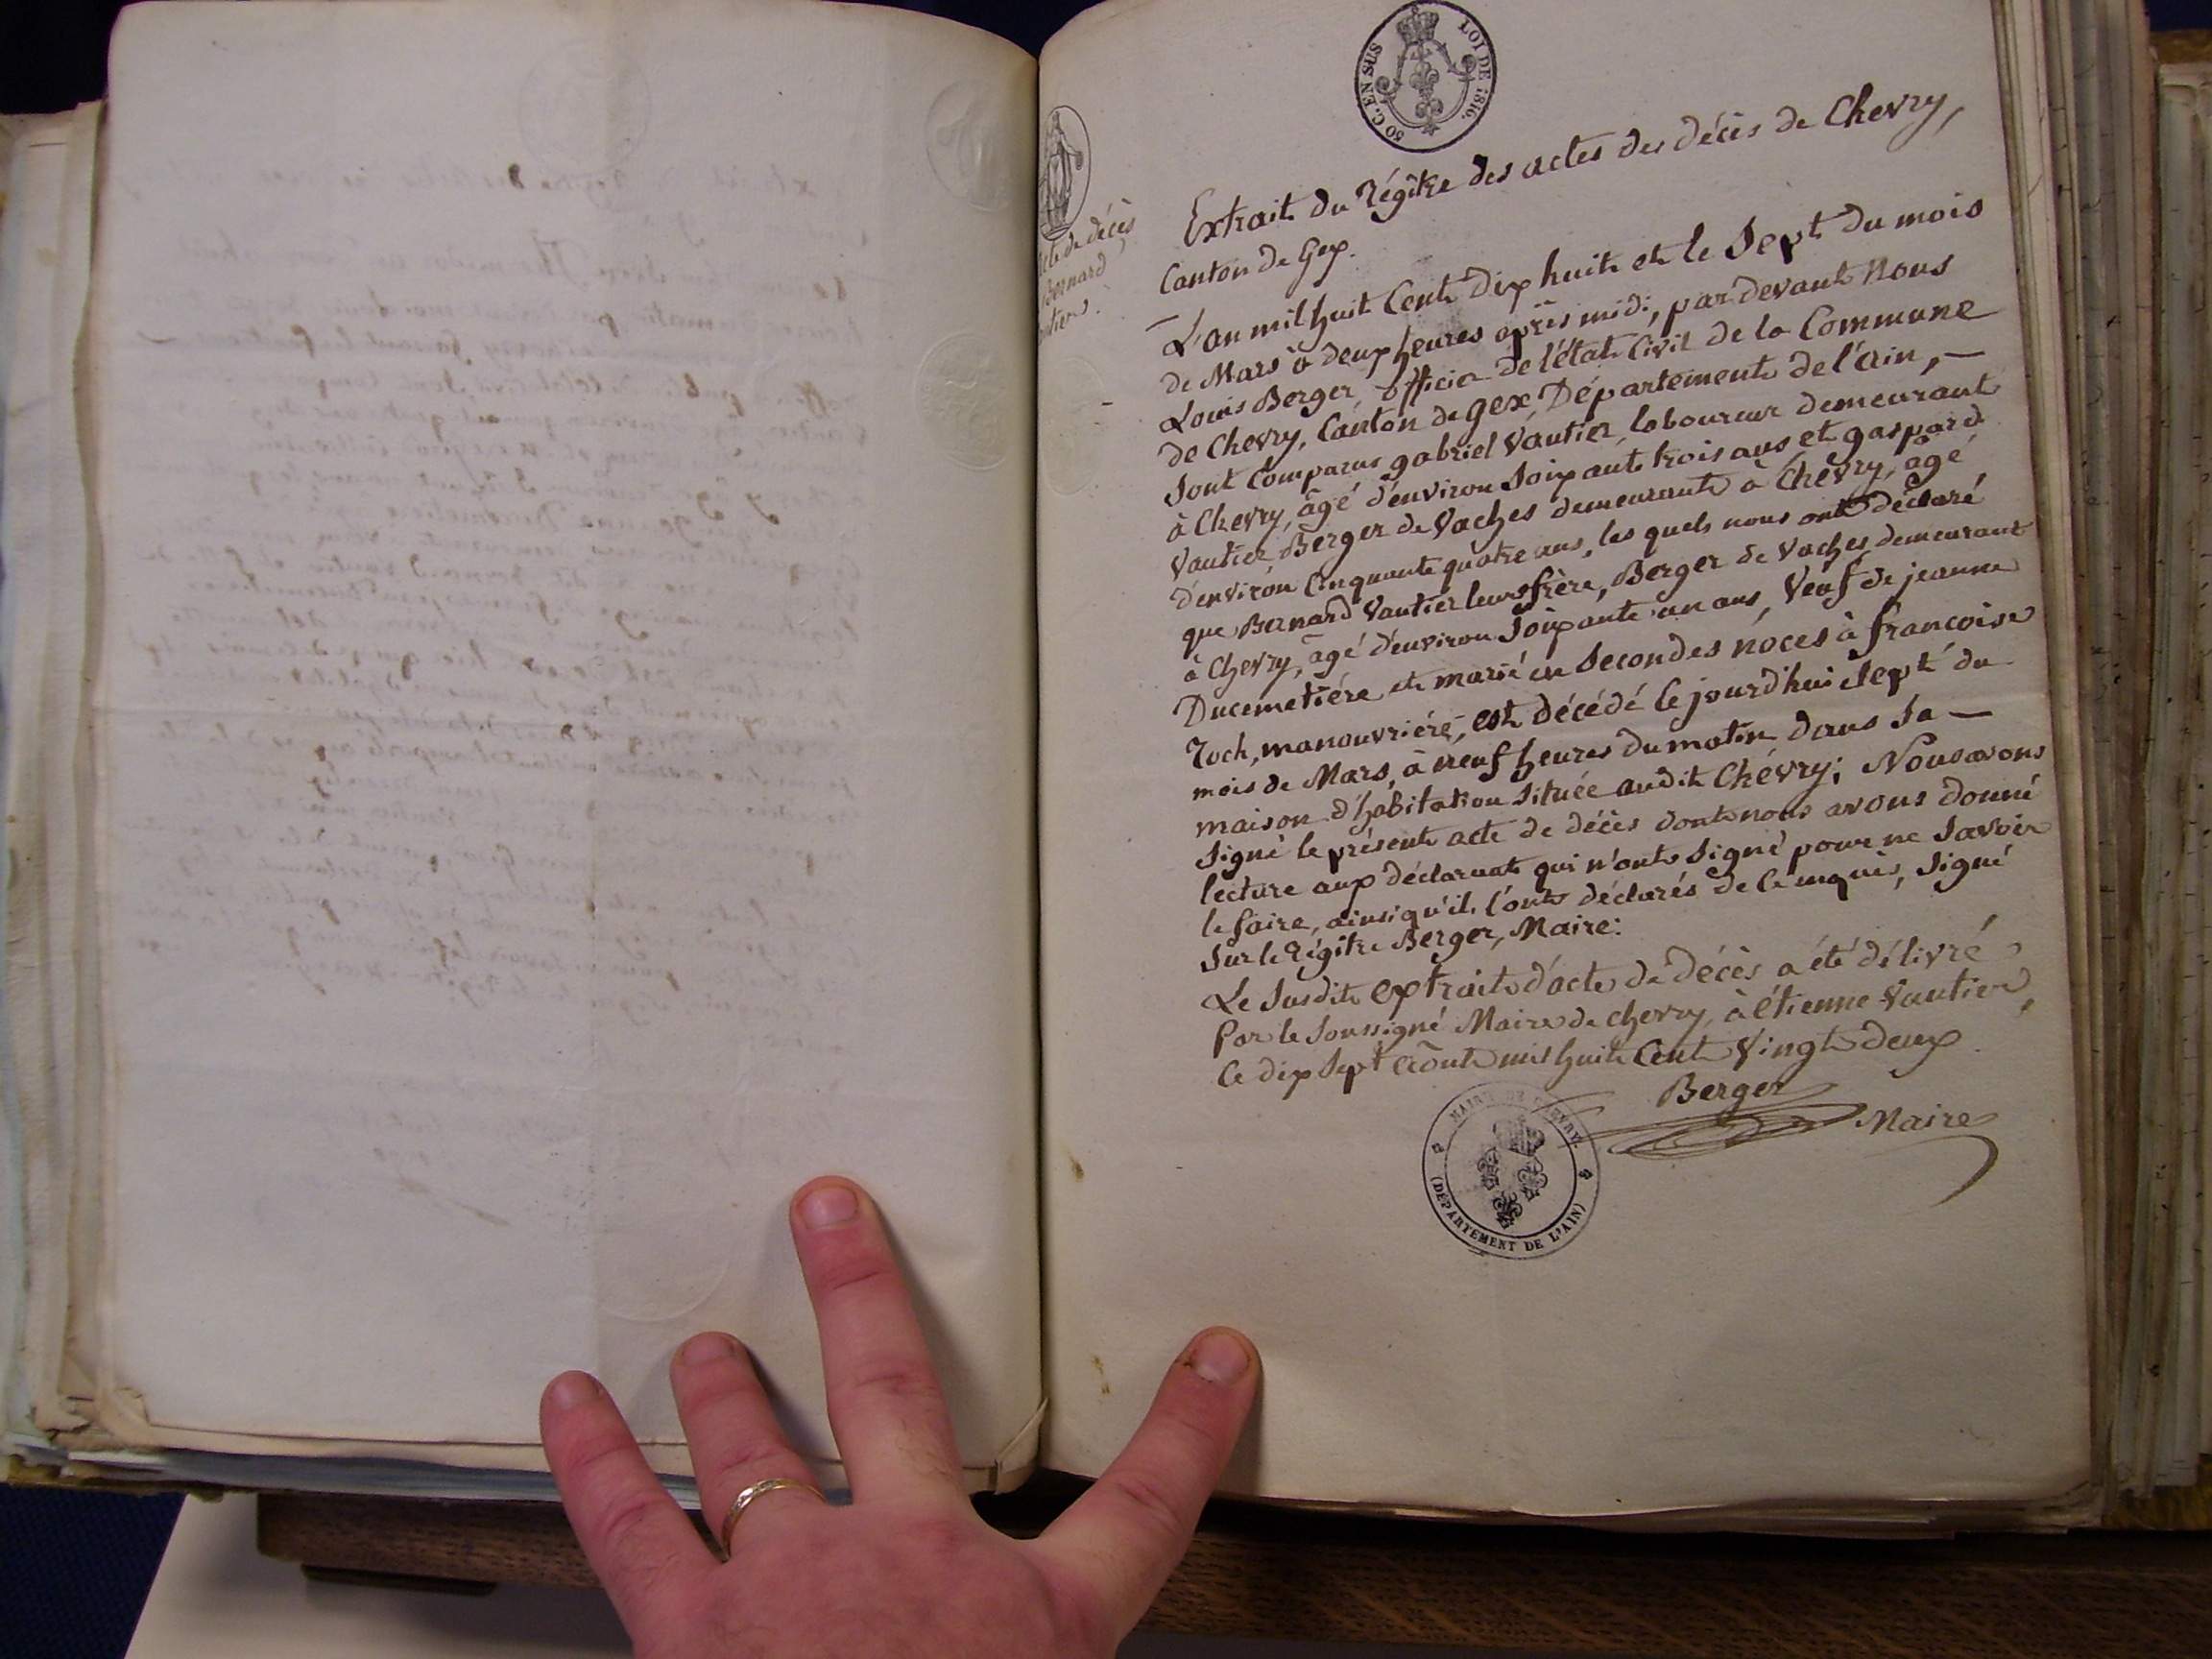 50 C. EN SUS
LOI DE 1816.
de décès
Bernard
Extrait du Régitre des actes des décès de Chevry,
Canton de Gex.
L'an mil huit Cent dix huit et le Sept du mois
de Mars à deux heures après midi, pardevant Nous
Louis Berger, officier de l'état Civil de la Commune
de Chevry, Canton de gex, Département de l'ain, —
Sont Comparus gabriel Vautier, laboureur demeurant
à Chevry, âgé d'environ Soixante trois ans et gaspard
Vautier, Berger de Vaches demeurant à Chevry, âgé
d'environ Cinquante quatre ans, les quels nous ont déclaré
que Bernard Vautier leurs frère, Berger de Vaches demeurant
à Chevry, âgé d'environ Soixante un ans, Veuf de jeanne
Ducemetiére et marié en Secondes nôces à francoise
Roch, manouvriére, est décédé le jourd'hui Sept du
mois de Mars, à neuf heures du matin dans Sa —
maison d'habitation Située audit Chévry; Nous avons
Signé le présent acte de décès dont nous avons donné
lecture aux déclarant qui n'ont Signé pour ne Savoir
le faire, ainsi qu'il l'ont déclarés de ce enquis, Signé
Sur le Régitre Berger, Maire:
Le Susdit extrait d'acte de Décès a été délivré
Par le Soussigné Maire de chevry, à étienne Vautier,
Ce dix Sept août mil huit Cent Vingt deux
Berger
Maire
MAIRIE DE CHEVRY
(DÉPARTEMENT DE L'AIN)